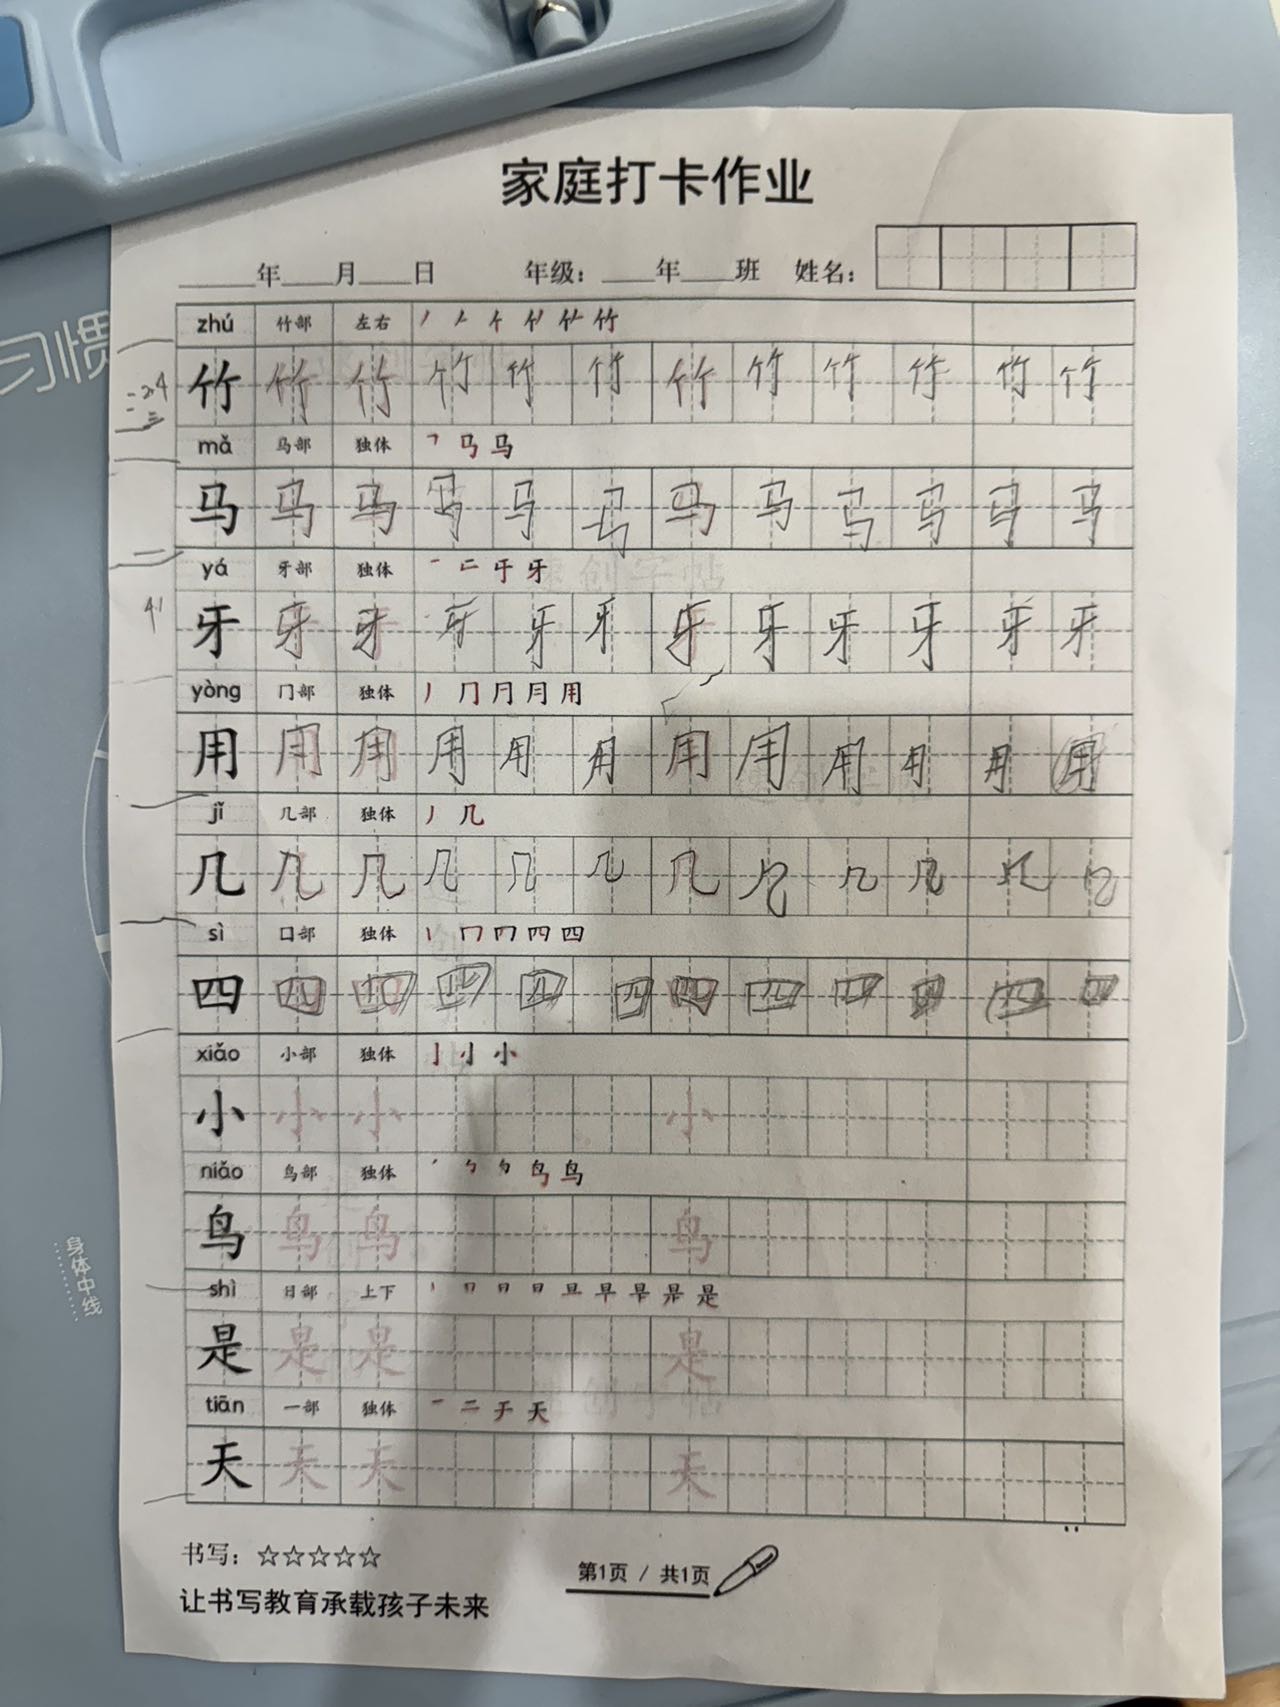 家庭打卡作业
____年____月____日 年级：____年____班 姓名：
习惯
zhú 竹部 左右
竹 竹 竹 竹 竹 竹 竹 竹 竹 竹 竹 竹
mǎ 马部 独体 ㇕ 马 马
马 马 马 马 马 马 马 马 马 马 马 马
yá 牙部 独体 一 二 于 牙
牙 牙 牙 牙 牙 牙 牙 牙 牙 牙 牙 牙
41
yòng 冂部 独体 丿 冂 月 月 用
用 用 用 用 用 用 用 用 用 用 用 用
jǐ 几部 独体 丿 几
几 几 几 几 几 几 几 几 几 几 几 几
sì 口部 独体 丨 冂 冂 四 四
四 四 四 四 四 四 四 四 四 四 四 四
xiǎo 小部 独体 亅 小 小
小 小 小 小
niǎo 鸟部 独体 鸟 鸟
鸟 鸟 鸟 鸟
shì 日部 上下 丨 冂 日 日 旦 早 早 昰 是
是 是 是 是
tiān 一部 独体 一 二 于 天
天 天 天 天
身体中线
书写：☆☆☆☆☆
第1页 / 共1页
让书写教育承载孩子未来